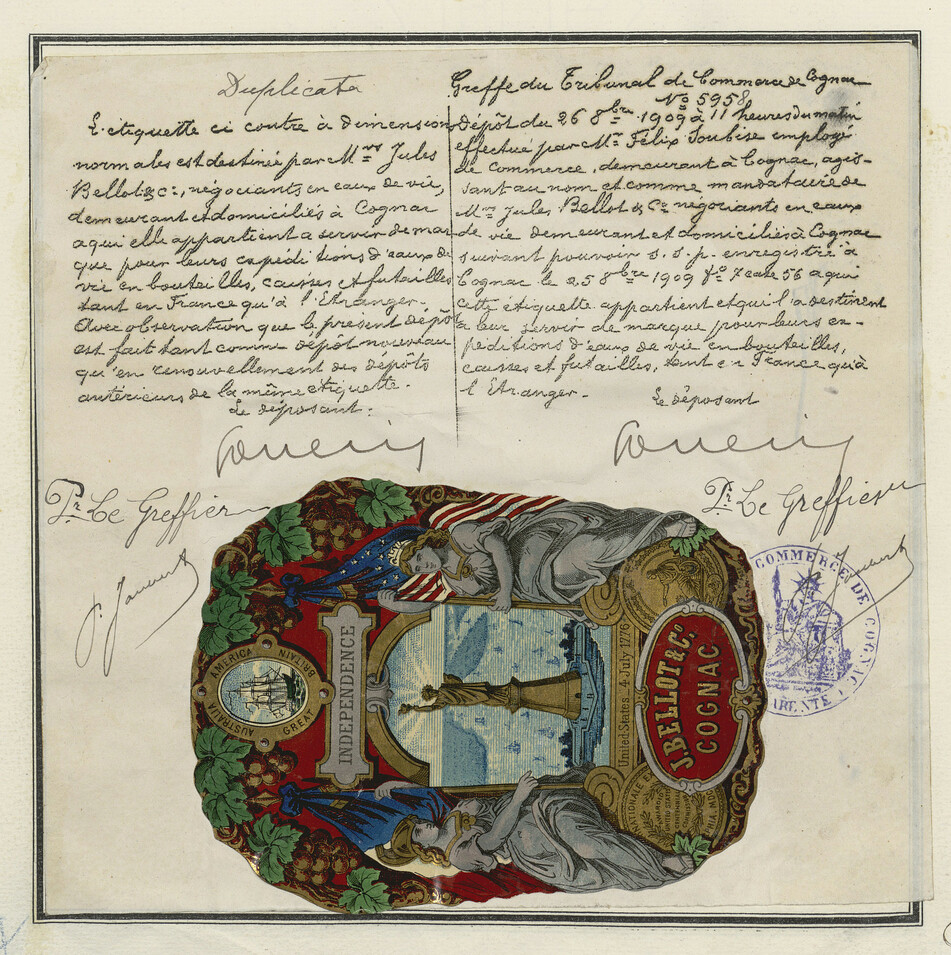 Duplicata
L'étiquette ci contre à dimensions
normales est destinée par Mrs Jules
Bellot & Cie, négociants en eaux de vie,
demeurant et domiciliés à Cognac
a qui elle appartient a servir de mar
que pour leurs expéditions d'eaux de
vie en bouteilles, caisses et futailles
tant en France qu'à l'Etranger.
Avec observation que le présent dépôt
est fait tant comme dépôt nouveau
qu'en renouvellement des dépôts
antérieurs de la même étiquette.
Le déposant:
Pr Le Greffier
Greffe du Tribunal de Commerce de Cognac
No 5958
Dépôt du 26 8bre 1909 à 11 heures du matin
effectué par Mr Félix Soubise employé
de Commerce, demeurant à Cognac, agis-
sant au nom et comme mandataire de
Mrs Jules Bellot & Co négociants en eaux
de vie demeurant et domiciliés à Cognac
suivant pouvoir s.s.p. enregistré à
Cognac le 25 8bre 1909 fo 7 case 56 a qui
cette étiquette appartient et qui l'a destinent
a leur servir de marque pour leurs ex-
péditions d'eaux de vie en bouteilles,
caisses et futailles, tant en France qu'à
l'Etranger.
Le déposant
Pr Le Greffier
COMMERCE DE COGNAC
INDEPENDENCE
AMERICA
GREAT BRITAIN
AUSTRALIA
United States 4 July 1776
J. BELLOT & Co.
COGNAC